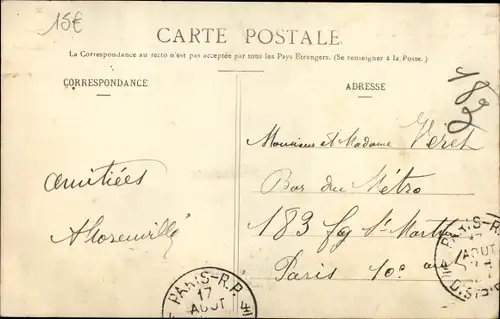 15€
CARTE POSTALE
La Correspondance au recto n'est pas acceptée par tous les Pays Etrangers. (Se renseigner à la Poste.)
CORRESPONDANCE
ADRESSE
Monsieur et Madame Veret
Bar du Métro
183 fg St Martin
Paris 10e
amitiées
PARIS-R.P.
17
AOUT
PARIS-R.P.
17
AOUT
DISTRIB